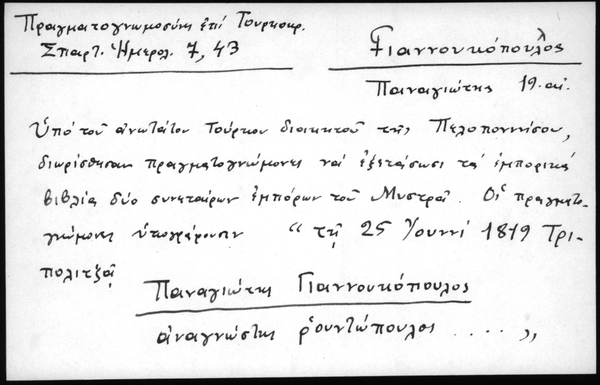 Πραγματογνωμοσύνη ἐπί Τουρκοκρ.
Σπαρτ. Ἡμερολ. 7, 43
Γιαννουκόπουλος
Παναγιώτης 19. αἰ.
Ὑπό τοῦ ἀνωτάτου Τούρκου διοικητοῦ τῆς Πελοποννήσου,
διωρίσθησαν πραγματογνώμονες νά ἐξετάσωσι τά ἐμπορικά
βιβλία δύο συνεταίρων ἐμπόρων τοῦ Μυστρᾶ. Οἱ πραγματο-
γνώμονες ὑπογράφουσιν "τῇ 25 Ἰουνίου 1819 Τρι-
πολιτζᾷ
Παναγιώτης Γιαννουκόπουλος
ἀναγνώστης ῥουντόπουλος .... "